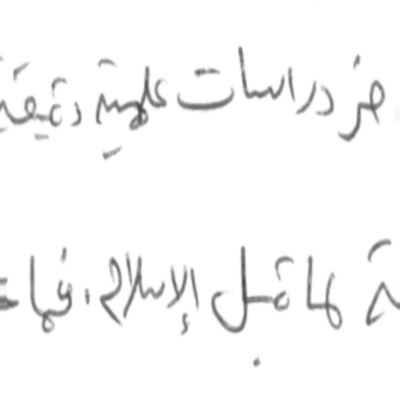 دراسات علمية دقيقة
لما قبل الإسلام، فما